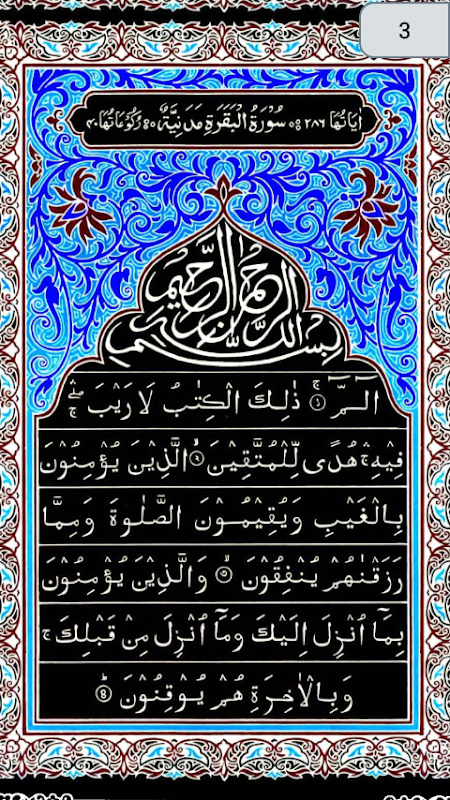 3
اٰيَاتُهَا ٢٨٦ سُوْرَةُ الْبَقَرَةِ مَدَنِيَّةٌ رُكُوْعَاتُهَا ٤٠
بِسْمِ اللّٰهِ الرَّحْمٰنِ الرَّحِيْمِ
الٓمّٓ ۚ ۝١ ذٰلِكَ الْكِتٰبُ لَا رَيْبَ ۛۖ
فِيْهِ ۛۚ هُدًى لِّلْمُتَّقِيْنَ ۙ ۝٢ الَّذِيْنَ يُؤْمِنُوْنَ
بِالْغَيْبِ وَيُقِيْمُوْنَ الصَّلٰوةَ وَمِمَّا
رَزَقْنٰهُمْ يُنْفِقُوْنَ ۙ ۝٣ وَالَّذِيْنَ يُؤْمِنُوْنَ
بِمَآ اُنْزِلَ اِلَيْكَ وَمَآ اُنْزِلَ مِنْ قَبْلِكَ ۚ
وَبِالْاٰخِرَةِ هُمْ يُوْقِنُوْنَ ۝٤